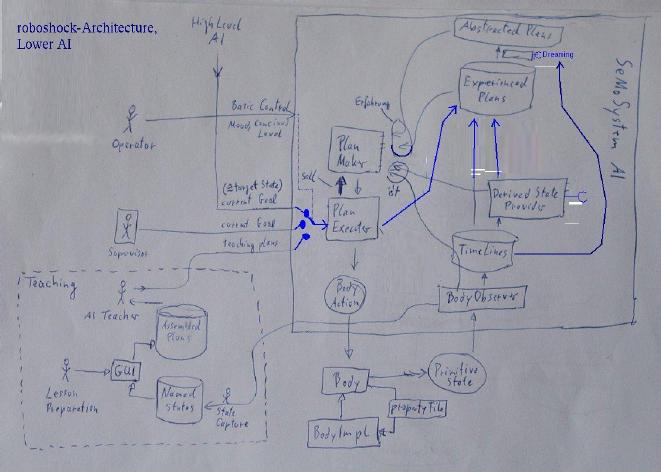 roboshock-Architecture,
Lower AI
High Level
AI
Abstracted Plans
Dreaming
SeMoSystem AI
Experienced
Plans
Erfahrung
Basic Control
Operator
Plan
Maker
Soll
ist
Derived State
Provider
(≙ target State)
current Goal
Plan
Executer
current Goal
Supervisor
teaching plans
TimeLines
Teaching
AI Teacher
Body
Action
BodyObserver
Assembled
Plans
GUI
Lesson
Preparation
Named
States
State
Capture
Body
Primitive
State
propertyFile
BodyImpl